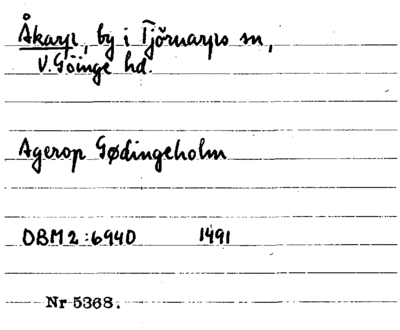 Åkarp, by i Tjörnarps sn,
V. Göinge hd.
Agerop Gødingeholm
DBM 2:6940 1491
Nr 5368.